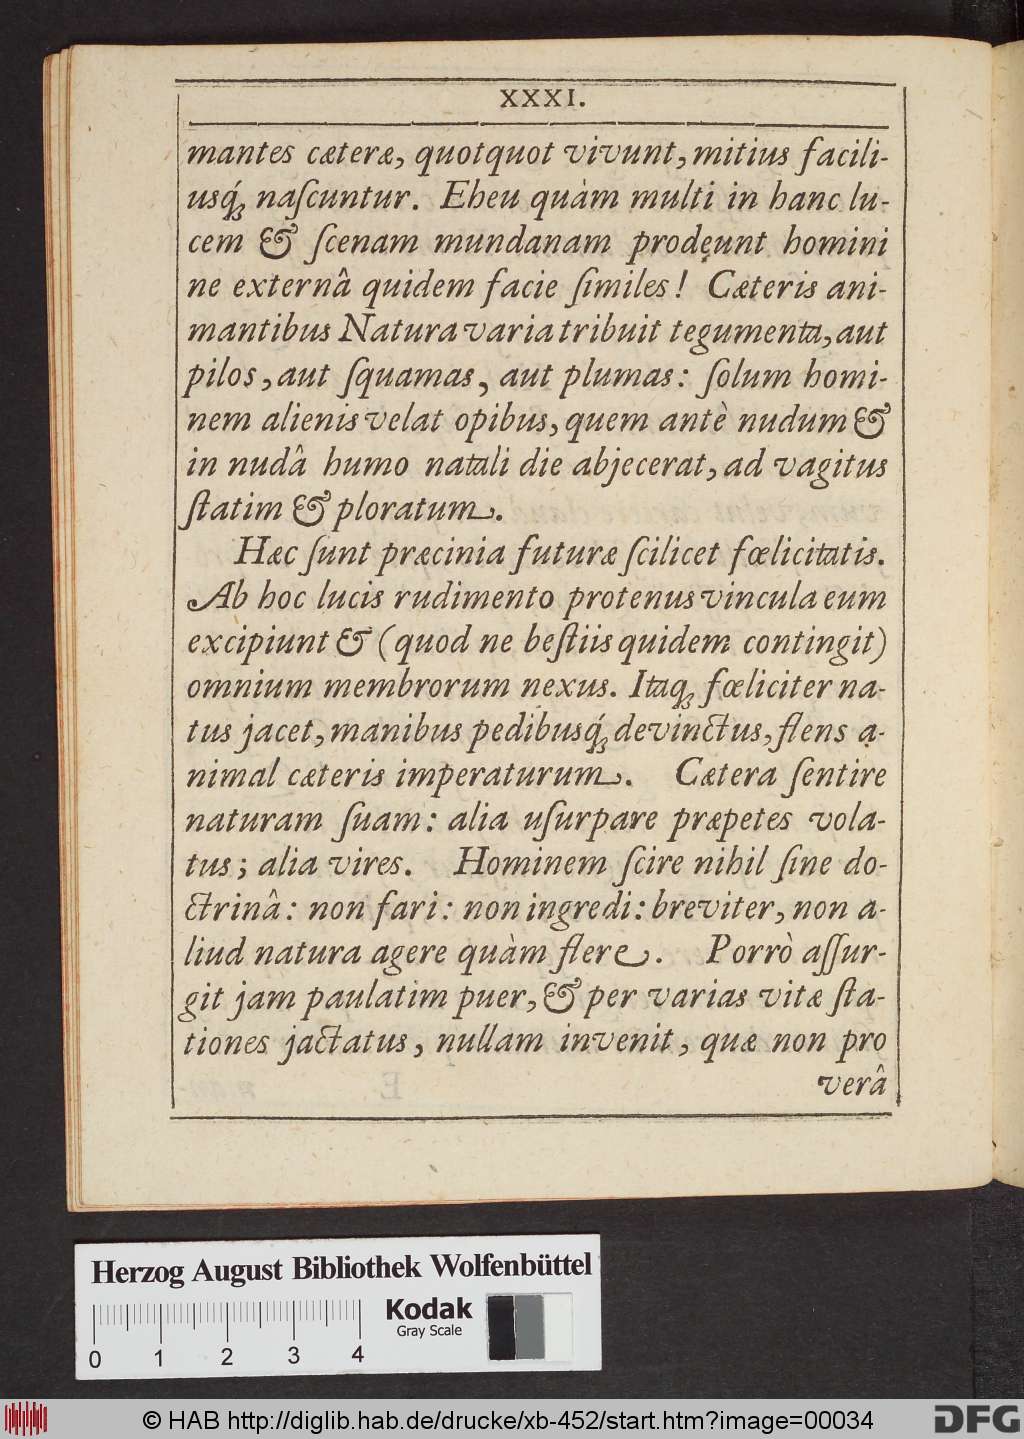 XXXI.
mantes cæteræ, quotquot vivunt, mitius facili-
usq́ꝫ naſcuntur. Eheu quàm multi in hanc lu-
cem & ſcenam mundanam prodęunt homini
ne externâ quidem facie ſimiles! Cæteris ani-
mantibus Natura varia tribuit tegumenta, aut
pilos, aut ſquamas, aut plumas: ſolum homi-
nem alienis velat opibus, quem antè nudum &
in nudâ humo natali die abjecerat, ad vagitus
ſtatim & ploratum.
Hæc ſunt præcinia futuræ ſcilicet fœlicitatis.
Ab hoc lucis rudimento protenus vincula eum
excipiunt & (quod ne beſtiis quidem contingit)
omnium membrorum nexus. Itaqꝫ fœliciter na-
tus jacet, manibus pedibusq́ꝫ devinctus, flens a-
nimal cæteris imperaturum. Cætera ſentire
naturam ſuam: alia uſurpare præpetes vola-
tus; alia vires. Hominem ſcire nihil ſine do-
ctrinâ: non fari: non ingredi: breviter, non a-
liud natura agere quàm flere. Porrò aſſur-
git jam paulatim puer, & per varias vitæ ſta-
tiones jactatus, nullam invenit, quæ non pro
verâ
Herzog August Bibliothek Wolfenbüttel
Kodak
Gray Scale
0 1 2 3 4
© HAB http://diglib.hab.de/drucke/xb-452/start.htm?image=00034
DFG